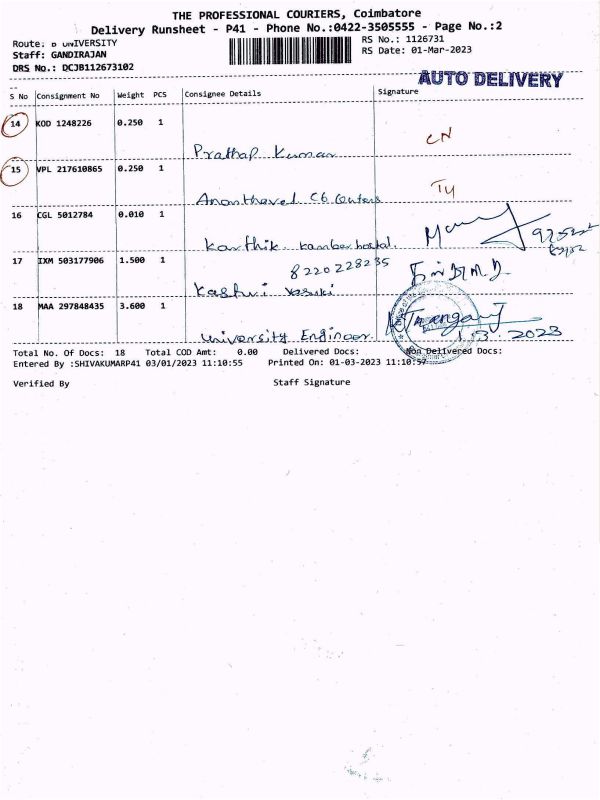 THE PROFESSIONAL COURIERS, Coimbatore
Delivery Runsheet - P41 - Phone No.:0422-3505555 - Page No.:2
Route: B UNIVERSITY
RS No.: 1126731
Staff: GANDIRAJAN
RS Date: 01-Mar-2023
DRS No.: DCJB112673102
AUTO DELIVERY
S No Consignment No Weight PCS Consignee Details Signature
14 KOD 1248226 0.250 1
Prathap Kumar CN
15 VPL 217610865 0.250 1
Ananthavel
16 CGL 5012784 0.010 1
Karthik
17 IXM 503177906 1.500 1
8220228235
18 MAA 297848435 3.600 1
University Engineer 1.3.2023
Total No. Of Docs: 18 Total COD Amt: 0.00 Delivered Docs: Non Delivered Docs:
Entered By :SHIVAKUMARP41 03/01/2023 11:10:55 Printed On: 01-03-2023 11:10:57
Verified By Staff Signature